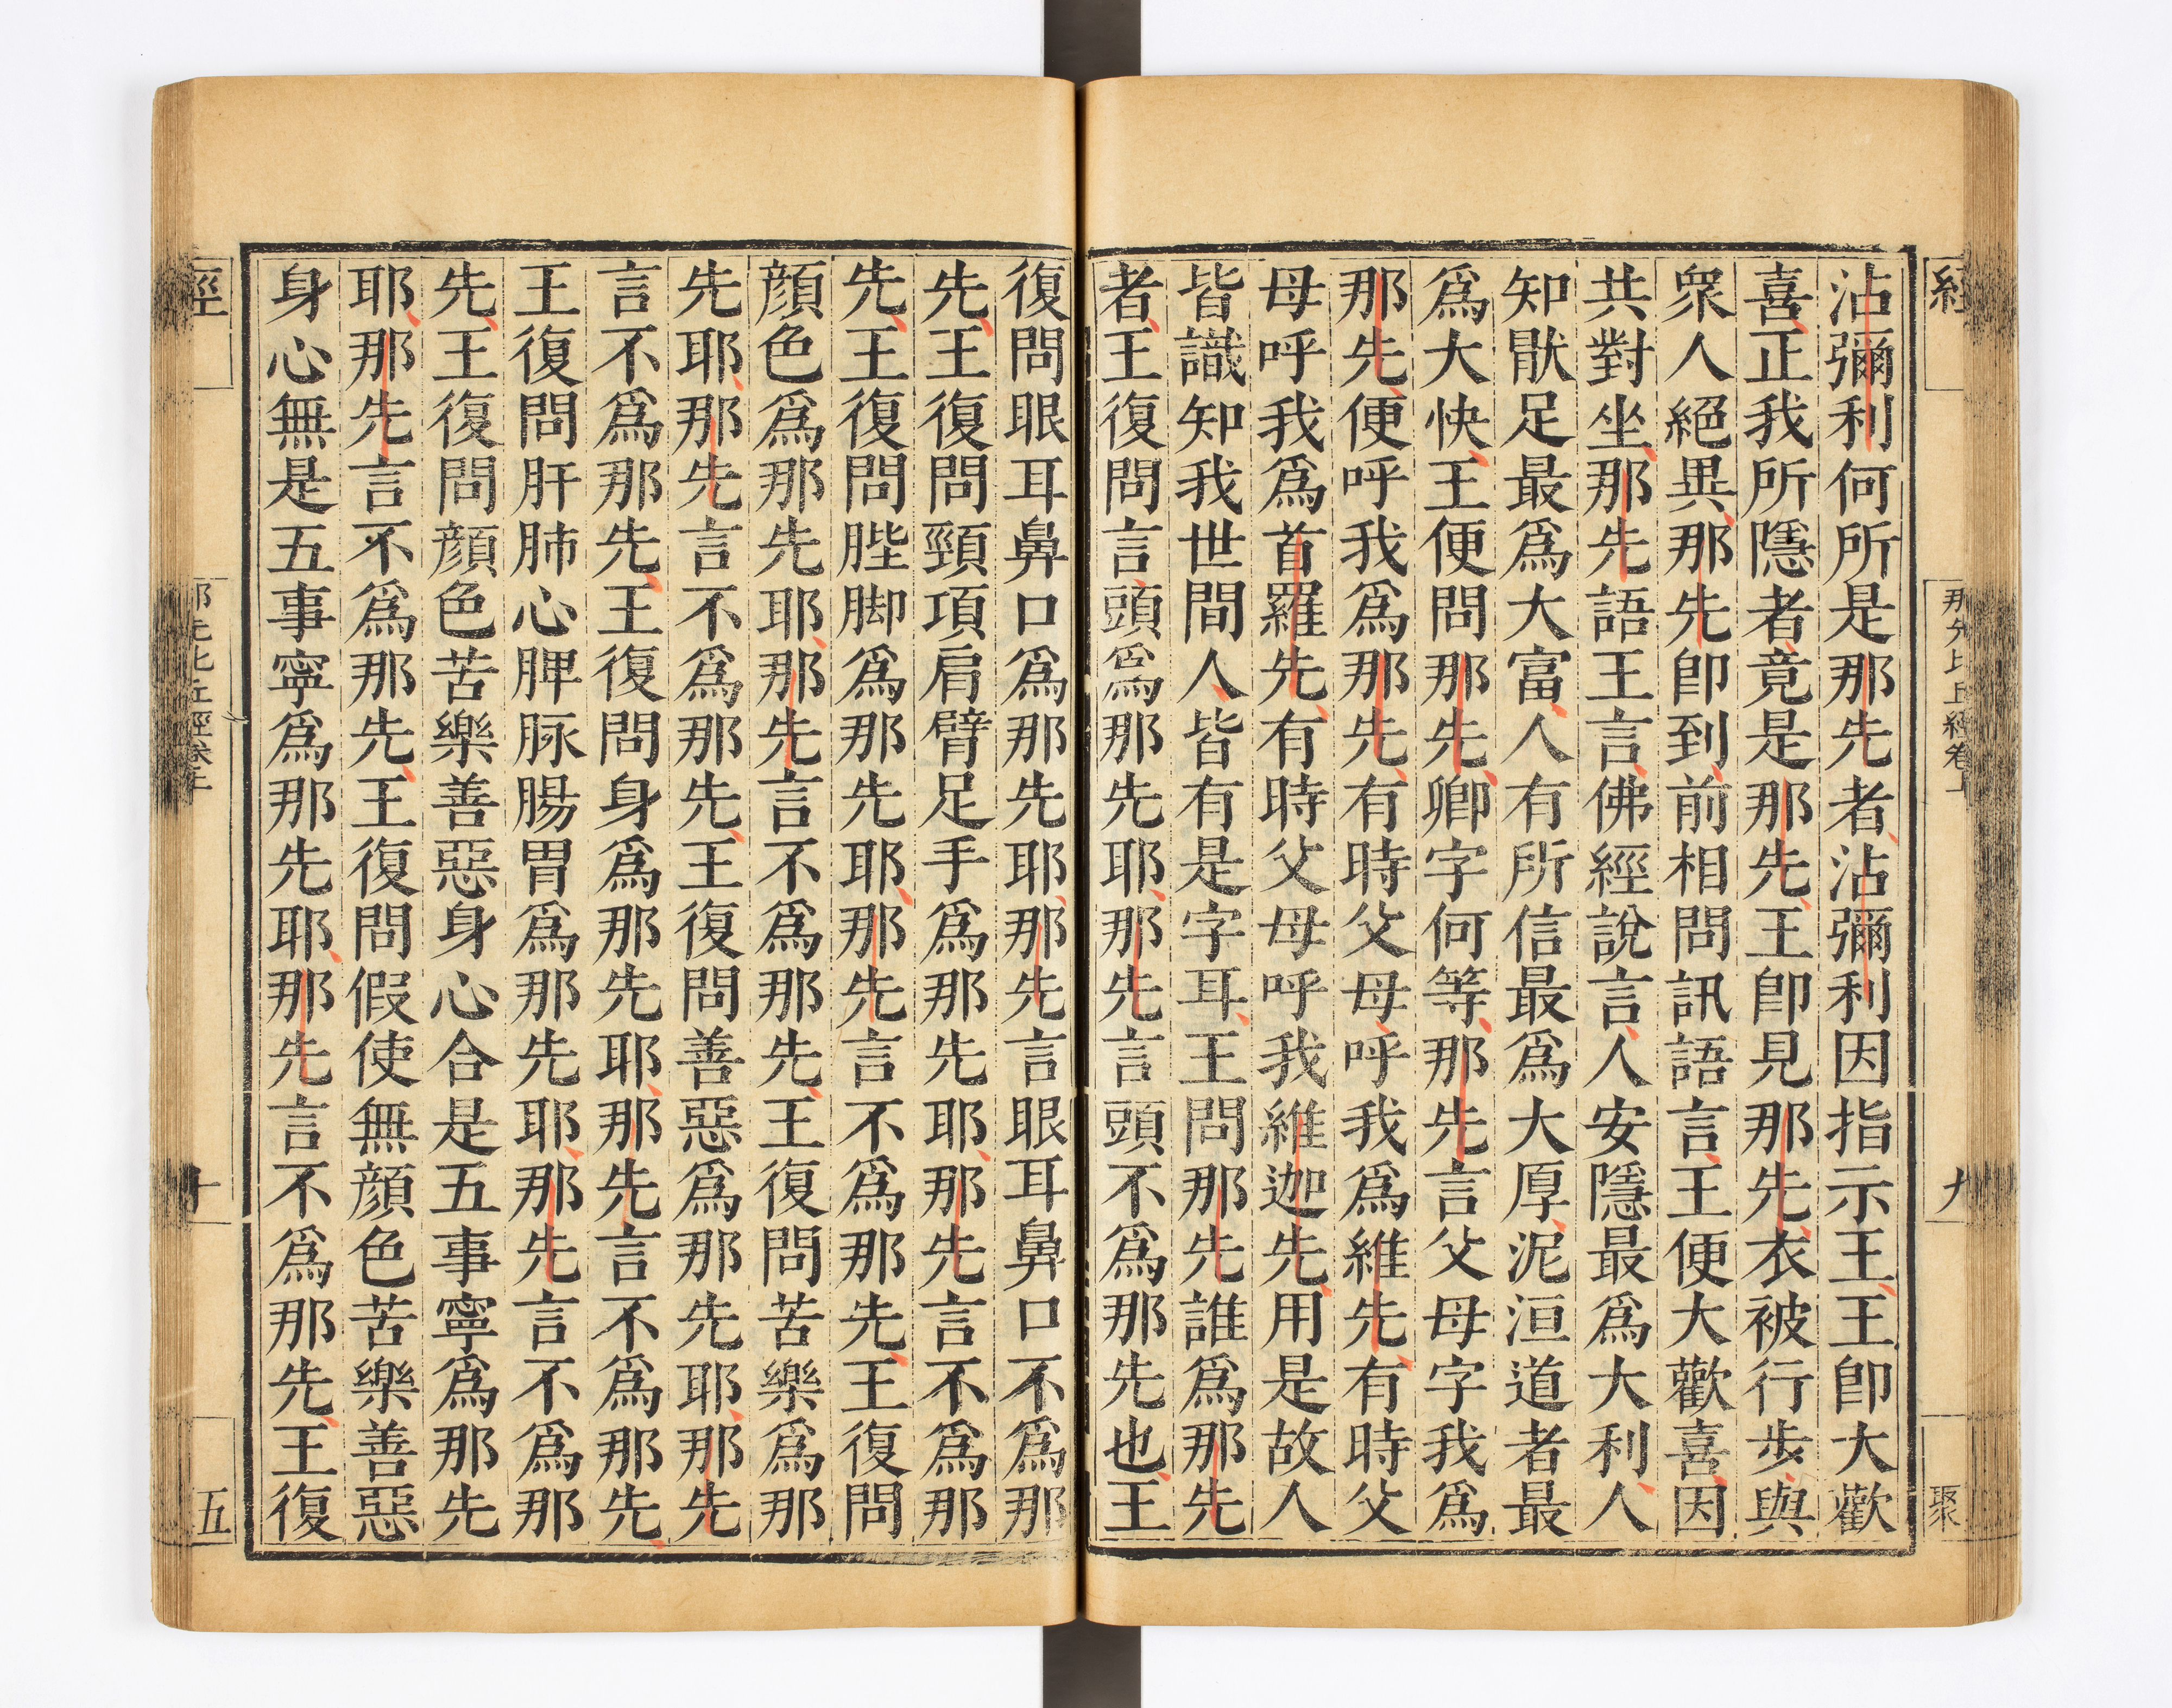 沾彌利何所是那先者沾彌利因指示王王卽大歡
喜正我所隱者竟是那先王卽見那先衣被行步與
衆人絕異那先卽到前相問訊語言王便大歡喜因
共對坐那先語王言佛經說言人安隱最爲大利人
知猒足最爲大富人有所信最爲大厚泥洹道者最
爲大快王便問那先卿字何等那先言父母字我爲
那先便呼我爲那先有時父母呼我爲維先有時父
母呼我爲首羅先有時父母呼我維迦先用是故人
皆識知我世間人皆有是字耳王問那先誰爲那先
者王復問言頭爲那先耶那先言頭不爲那先也王
復問眼耳鼻口爲那先耶那先言眼耳鼻口不爲那
先王復問頸項肩臂足手爲那先耶那先言不爲那
先王復問䏶脚爲那先耶那先言不爲那先王復問
顔色爲那先耶那先言不爲那先王復問苦樂爲那
先耶那先言不爲那先王復問善惡爲那先耶那先
言不爲那先王復問身爲那先耶那先言不爲那先
王復問肝肺心脾脉腸胃爲那先耶那先言不爲那
先王復問顔色苦樂善惡身心合是五事寧爲那先
耶那先言不爲那先王復問假使無顔色苦樂善惡
身心無是五事寧爲那先耶那先言不爲那先王復
經
那先比丘經卷上
九
聚
經
那先比丘經卷上
十
五